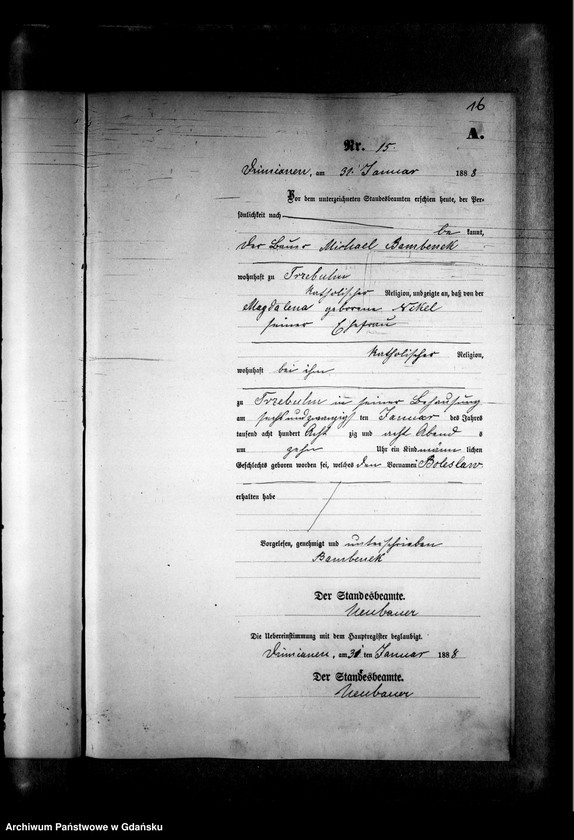 16
A.
Nr. 15.
Dzimianen, am 30. Januar 1888
Vor dem unterzeichneten Standesbeamten erschien heute, der Per-
sönlichkeit nach
be kannt,
der Bauer Michael Bambenek
wohnhaft zu Trzebuhn
katholischer Religion, und zeigte an, daß von der
Magdalena geborene Nikel
seiner Ehefrau
katholischer Religion,
wohnhaft bei ihm
zu Trzebuhn in seiner Behausung
am sechsundzwanzigsten ten Januar des Jahres
tausend acht hundert Acht zig und acht Abend s
um zehn Uhr ein Kind männ lichen
Geschlechts geboren worden sei, welches den Vornamen Boleslaw
erhalten habe
Vorgelesen, genehmigt und unterschrieben
Bambenek
Der Standesbeamte.
Neubauer
Die Uebereinstimmung mit dem Hauptregister beglaubigt.
Dzimianen, am 30 ten Januar 1888
Der Standesbeamte.
Neubauer
Archiwum Państwowe w Gdańsku